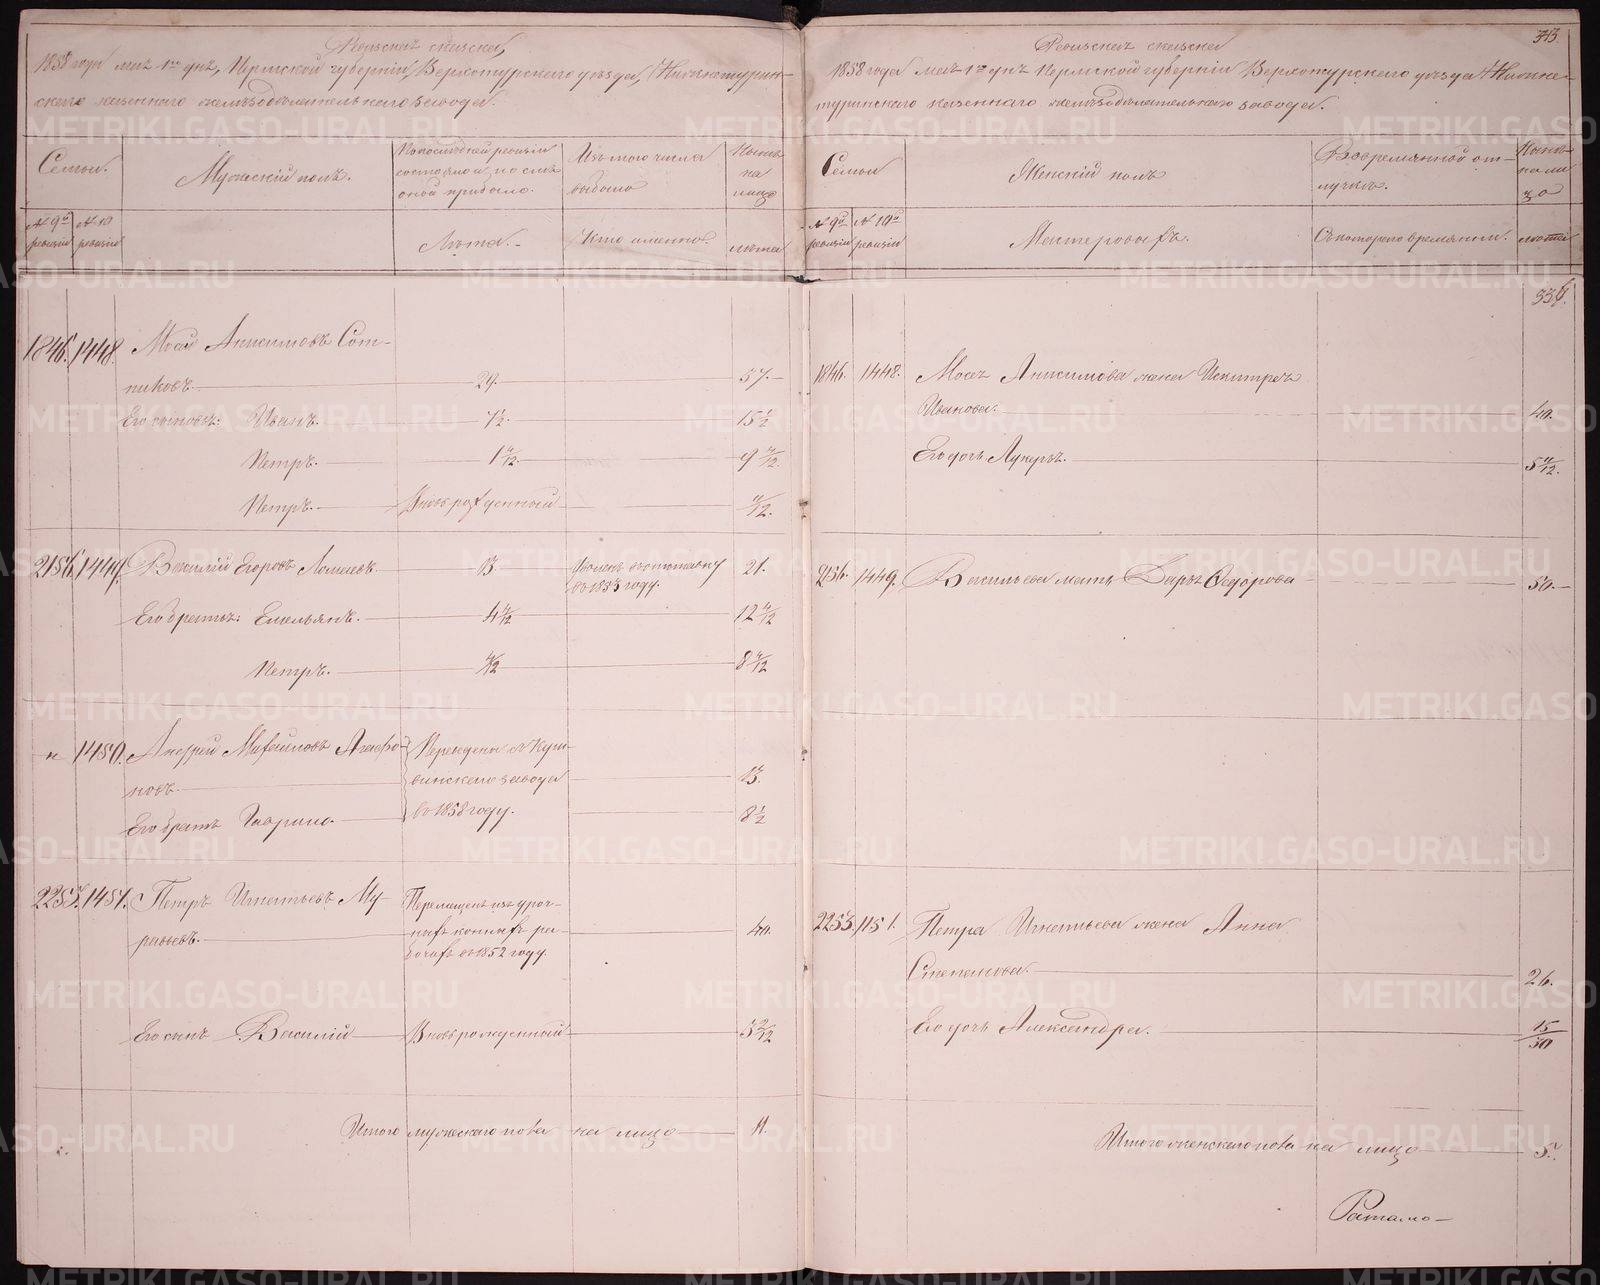 Ревизская сказка
1858 года мая 1го дня, Пермской губерніи, Верхотурскаго уезда, Нижнетурин-
скаго казеннаго железоделательнаго завода.
Семьи.
Мужескій полъ.
По последней ревизіи состояло и после оной прибыло.
Изъ того числа выбыло
Ныне на лицо
№ 9й ревизіи
№ 10 ревизіи
Лета.
Кто именно.
лета
1846. 1448. Мосей Анисимовъ Сот-
никовъ. 29. 37.
Его сыновья: Иванъ. 7½. 15½
Петръ. 1 9
Петръ. Вновьрожденный /12.
2156. 1449. Василій Егоровъ 13 21.
въ 1855 году.
Его братья: Емельянъ. 4 12
Петръ. 8
и 1450. Андрей Михайловъ Агафо-
новъ. 13.
Переведены съ Куш-
винскаго завода
въ 1858 году.
Его братъ Гаврило. 8½
2253. 1451. Петръ Игнатьевъ Му-
рзаевъ. 40.
Перемещенъ изъ уроч-
ныхъ конныхъ ра-
бочихъ въ 1852 году.
Его сынъ Василій Вновьрожденный
Итого мужескаго пола на лицо 11.
343.
Ревизская сказка
1858 года мая 1го дня Пермской губерніи Верхотурскаго уезда Нижне-
туринскаго казеннаго железоделательнаго завода.
Семьи
Женскій полъ
Во временной от-
лучке.
Ныне на ли
цо
№ 9й ревизіи
№ 10й ревизіи
Мастеровыхъ.
Съ котораго времяни.
лета
1846. 1448. Мосея Анисимова жена
Иванова. 40.
Его дочь Лукерья. 5
2156. 1449. Васильева мать Дарья Федорова 50.
2253. 1151. Петра Игнатьева жена Анна
Степанова. 26.
Его дочь Александра. 15/30
Итого женскаго пола на лицо 5.
METRIKI.GASO-URAL.RU